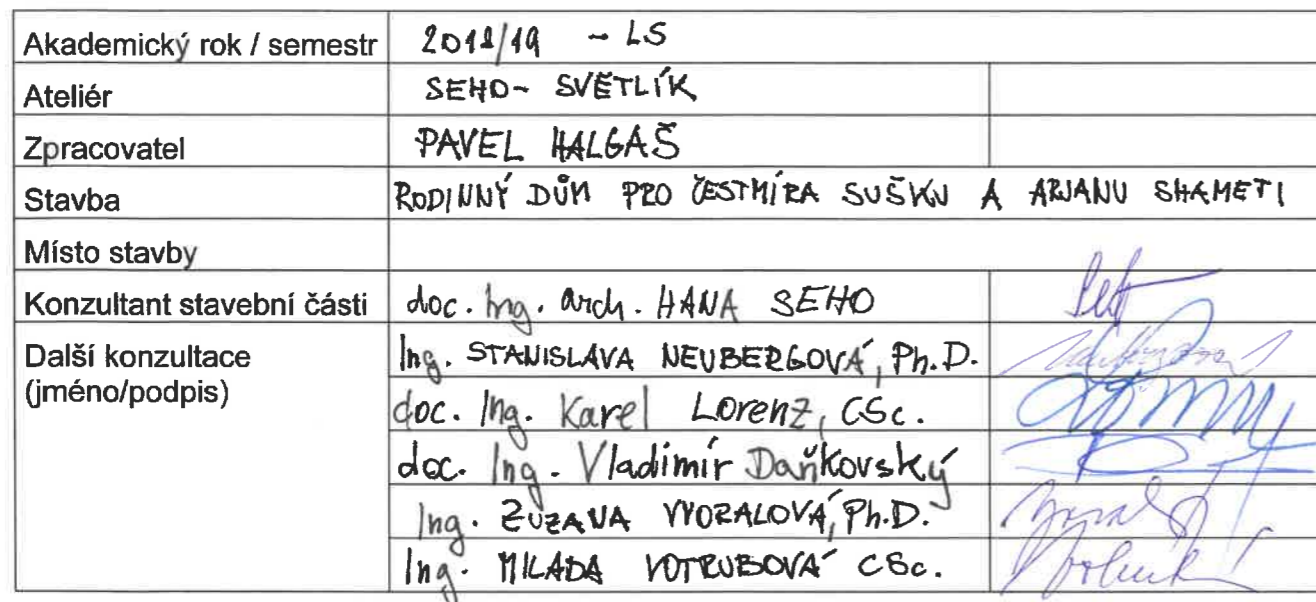 Akademický rok / semestr 2018/19 - LS
Ateliér SEHO- SVĚTLÍK
Zpracovatel PAVEL HALGAŠ
Stavba RODINNÝ DŮM PRO ČESTMÍRA SUŠKU A ARJANU SHAMETI
Místo stavby
Konzultant stavební části doc. Ing. arch. HANA SEHO
Další konzultace Ing. STANISLAVA NEUBERGOVÁ, Ph.D.
(jméno/podpis)
doc. Ing. Karel Lorenz, CSc.
doc. Ing. Vladimír Daňkovský
Ing. ZUZANA VYORALOVÁ, Ph.D.
Ing. MILADA VOTRUBOVÁ CSc.